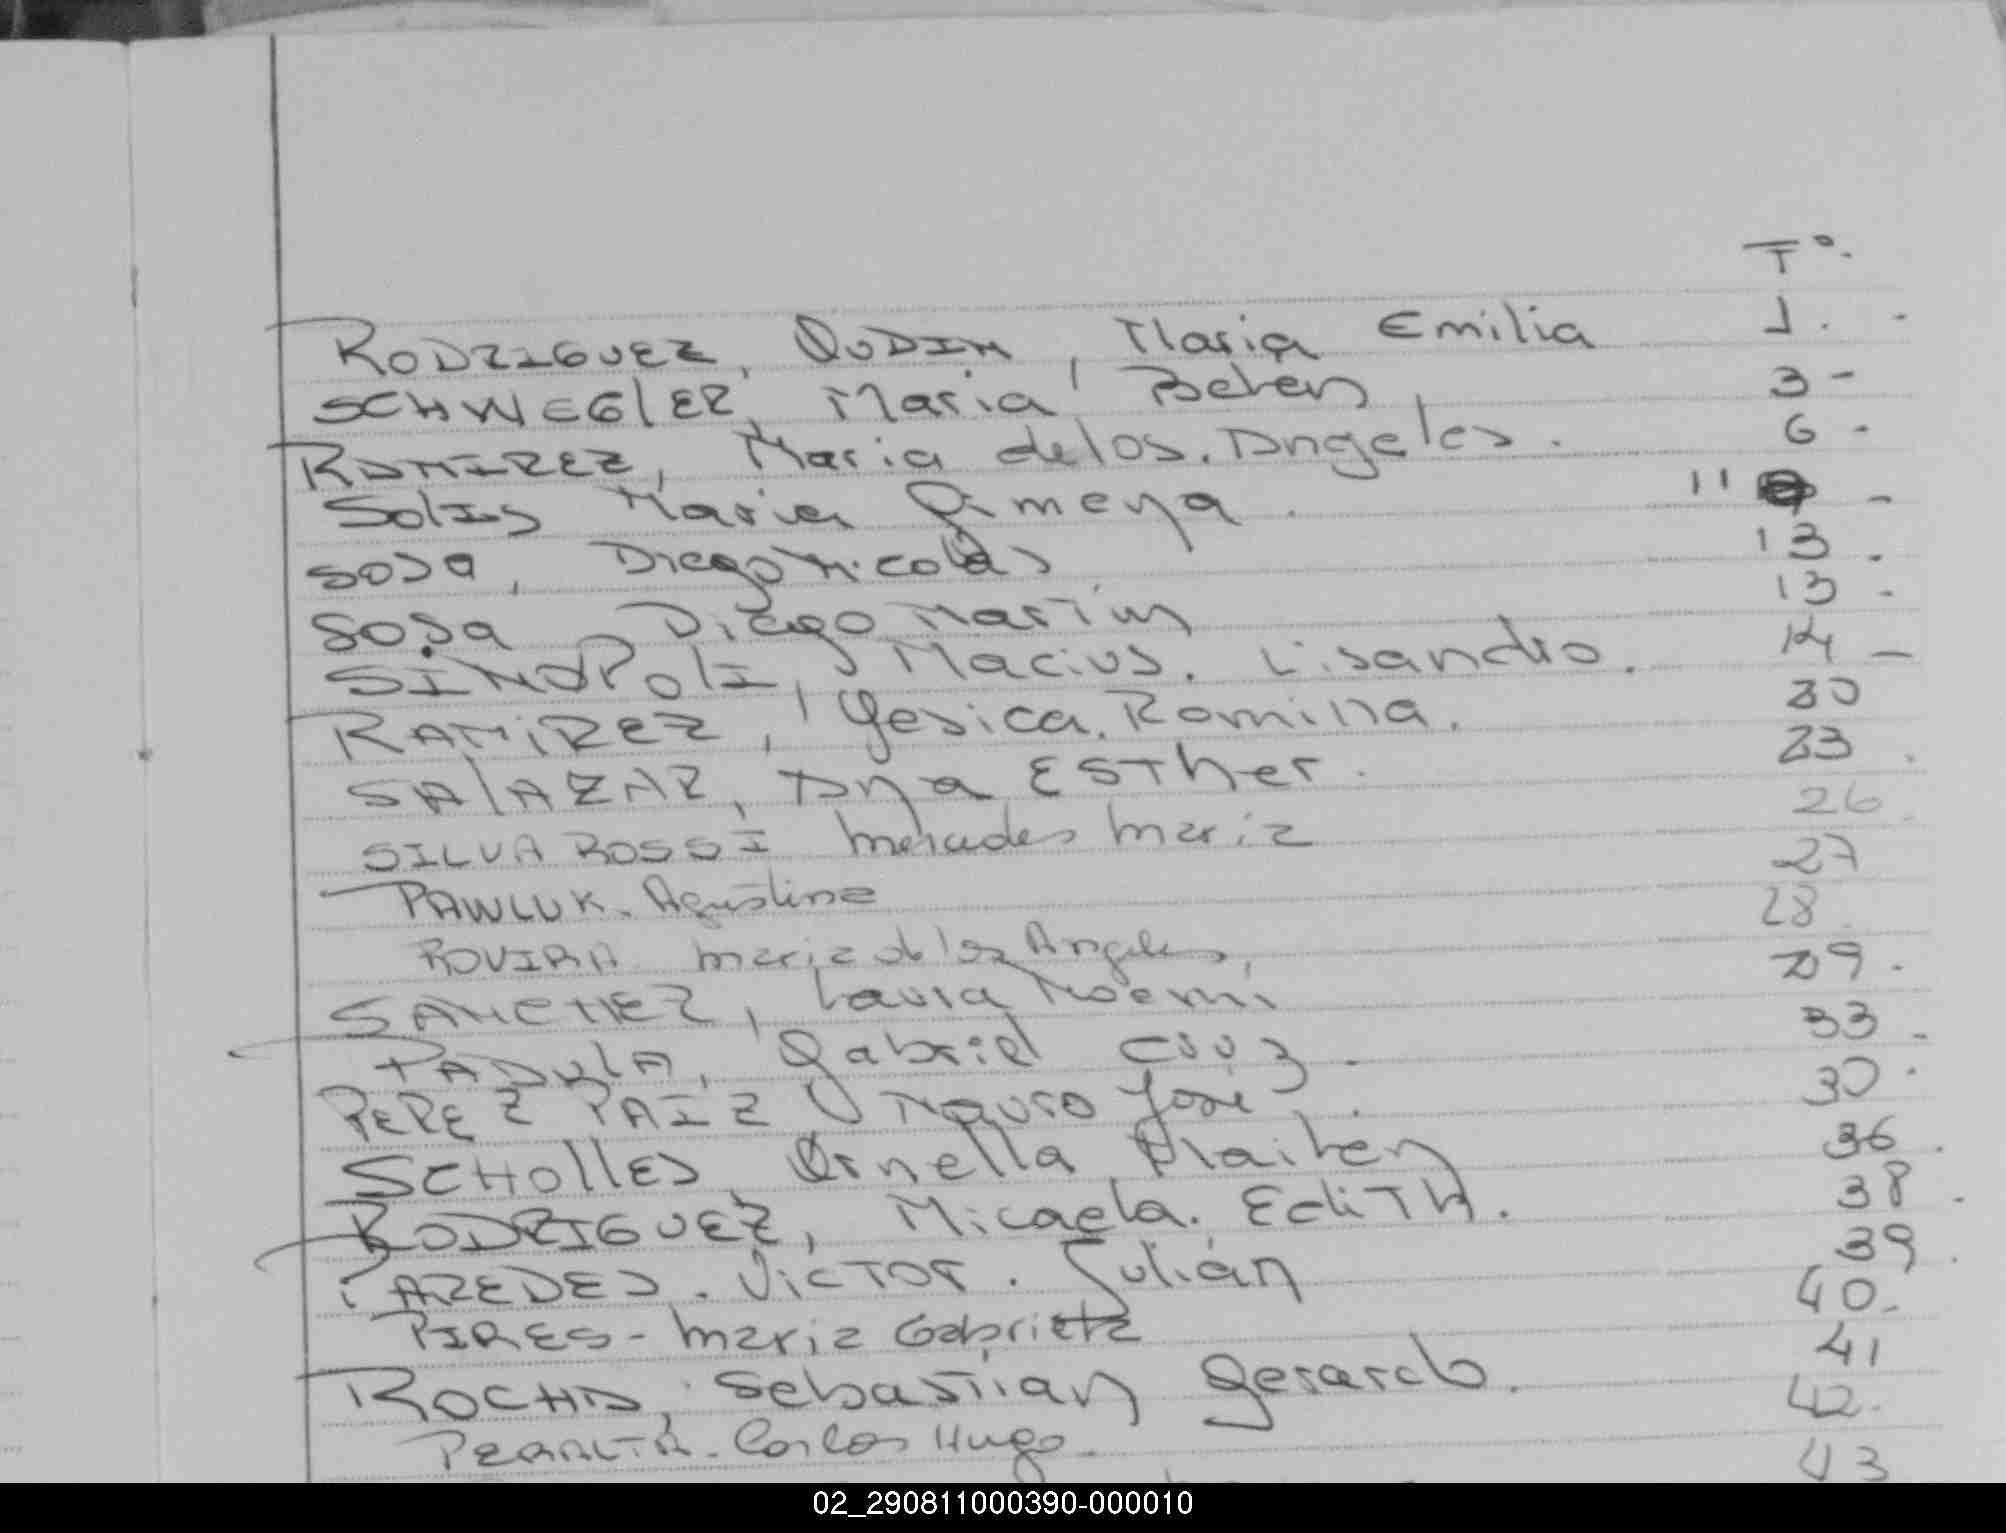 T°.
RODRIGUEZ, OUDIN, Maria Emilia 1. -
SCHWEGLER, Maria Belen 3 -
RAMIREZ, Maria de los. Angeles. 6 -
Solis Maria Gimena. 11 -
SOSA, Diego Nicolas 13.
SOSA Diego Martin 13 -
SINAPOLI, Macius. Lisandro. 14 -
RAMIREZ, Yesica. Romina. 20
SALAZAR, Ana ESTher. 23.
SILVA ROSSI Mercedes Maria 26.
PAWLUK. Agustina 27
ROVIRA Maria de los Angeles, 28.
SANCHEZ, Laura Noemi 29.
PADULA, Gabriel cruz. 33.
PEREZ PAIZ Mauro José. 30.
SCHOLLES, Ornella Mailen 36.
RODRIGUEZ, Micaela. EdiTH. 38.
PAREDES. VICTOR. Julián 39.
PIRES - Maria Gabriela 40.
ROCHA, Sebastian Gerardo. 41
PERALTA. Carlos Hugo. 42.
43
02_290811000390-000010